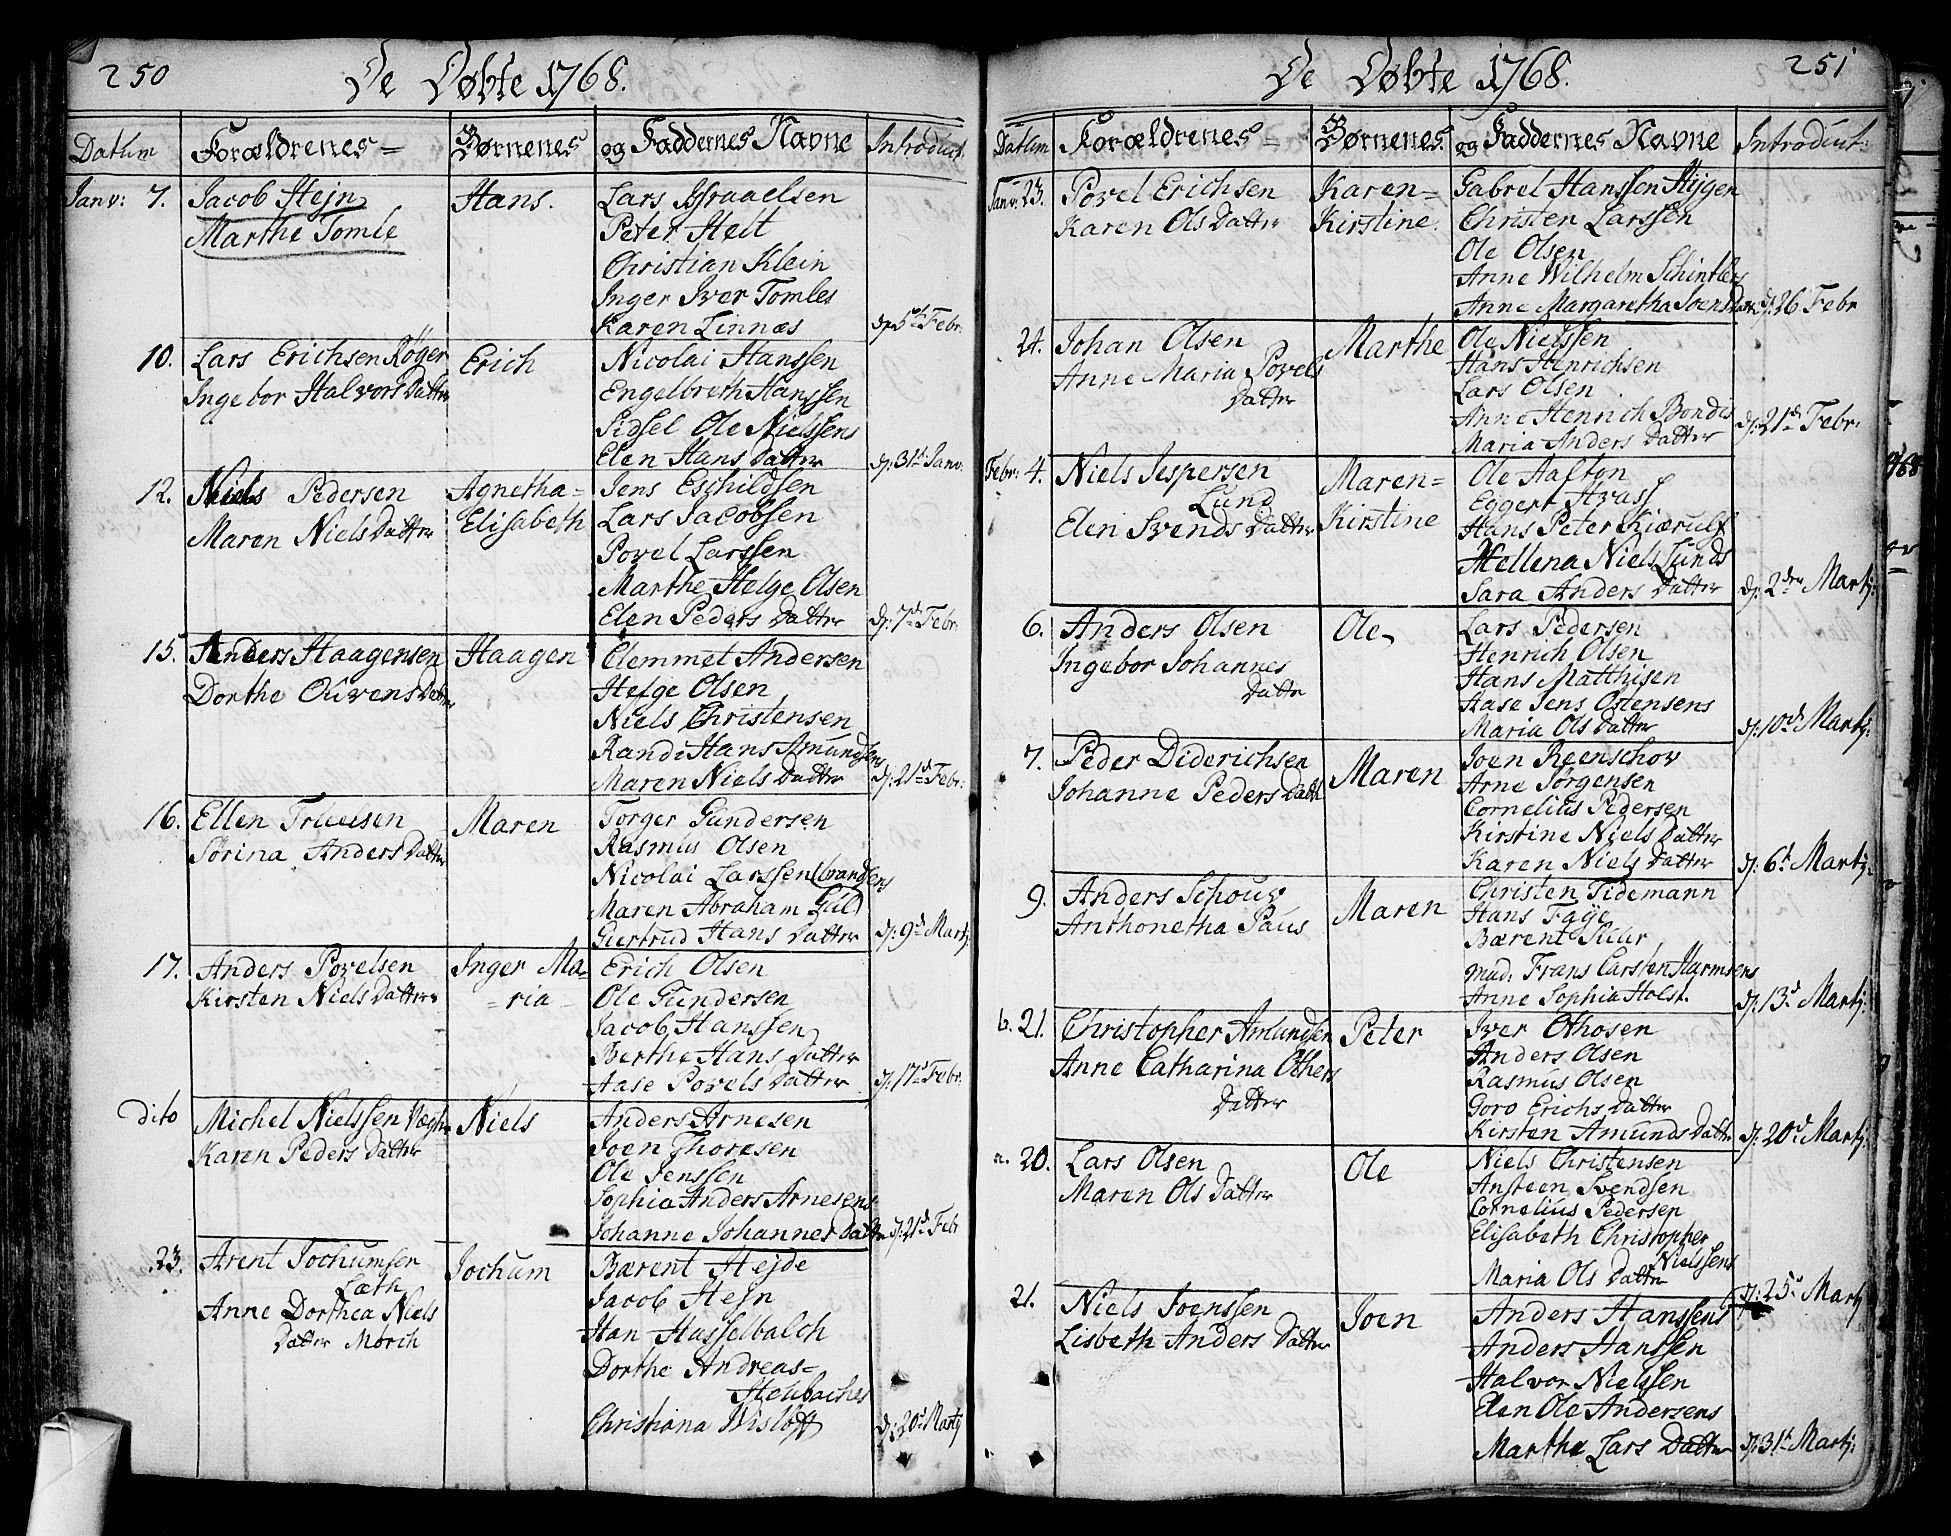 250
De Døbte 1768.
Datum Forældrenes= Børnenes og Faddernes Navne Introduct.
Janv: 7. Jacob Hejn Hans. Lars Israaelsen
Marthe Tomle Peter Helt
Christian Klein
Inger Iver Tomles
Karen Linnæs d: 5te Febr:
10. Lars Erichsen Røger Erich Nicolai Hanssen
Ingebor Halvors Datter Engelbreth Hanssen
Sidsel Ole Nielssens
Elen Hans Datter d: 31te Janv:
12. Niels Pedersen Agnetha= Jens Eschildsen
Maren Niels Datter Elisabeth Lars Jacobsen
Povel Larssen
Marthe Helge Olsen
Elen Peders Datter d: 7de Febr:
15. Anders Haagensen Haagen Clemmet Andersen
Dorthe Ouvens Datter Helge Olsen
Niels Christensen
Randi Hans Amundsens
Maren Niels Datter d: 21de Febr:
16. Ellen Truelsen Maren Torger Gundersen
Sørina Anders Datter Rasmus Olsen
Nicolai Larssen
Maren Abraham
Giertrud Hans Datter d: 9de Martj:
17. Anders Povelsen Inger Ma= Erich Olsen
Kirsten Niels Datter =ria Ole Gundersen
Jacob Hanssen
Berthe Hans Datter
Aase Povels Datter d: 17de Febr:
dito Michel Nielssen Niels Anders Arnesen
Karen Peders Datter Joen Thoresen
Ole Jenssen
Sophia Anders Arnesens
Johanne Johannes Datter d: 21de Febr
23. Arent Jochumsen Jochum Bærent Hejde
Læth Jacob Hejn
Anne Dorthea Niels Han Hasselbalch
Datter Mørch Dorthe Andreas=
Heubaches
Christiana Wisløff d: 20de Martj
251
De Døbte 1768.
Datum Forældrenes= Børnenes og Faddernes Navne Introduct:
Janv: 23. Povel Erichsen Karen= Gabrel Hanssen Hijgen
Karen Ols Datter Kirstine. Christen Larssen
Ole Olsen
Anne Wilhelm Schintlers
Anne Margaretha Joens Datter d: 26 Febr
24. Johan Olsen Marthe Ole Nielssen
Anne Maria Povels Hans Henrichsen
Datter Lars Olsen
Anne Henrich Bondes
Maria Anders Datter d: 21de Febr:
Febr: 4. Niels Jespersen Maren= Ole Aafton
Lund Kirstine Eggert Hvass
Elen Svends Datter Hans Peter Kiærulf
Hellena Niels Lunds
Sara Anders Datter d: 2den Martj:
6. Anders Olsen Ole Lars Pedersen
Ingebor Johannes Henrich Olsen
Datter Hans Matthisen
Aase Jens Ostensens
Maria Ols Datter d: 10de Martj:
7. Peder Diderichsen Maren Joen Reenschov
Johanne Peders Datter Arne Jørgensen
Cornelius Pedersen
Kirstine Niels Datter
Karen Niels Datter d: 6te Martj:
9. Anders Schouv Maren Christen Tidemann
Anthonetha Paus Hans Faÿe
Bærent
Mad: Frans Carsten Harmsens
Anne Sophia Holst. d: 13de Martj:
b. 21. Christopher Amundsen Peter Iver Othosen
Anne Catharina Others Anders Olsen
Datter Rasmus Olsen
Goro Erichs Datter
Kirsten Amunds Datter d: 20de Martj:
a. 20. Lars Olsen Ole Niels Christensen
Maren Ols Datter Ansteen Svendsen
Cornelius Pedersen
Elisabeth Christopher
Nielssens
Maria Ols Datter d: 25de Martj
21. Niels Joenssen Joen Anders Hanssens
Lisbeth Anders Datter Anders Hanssen
Halvor Nielssen
Elen Ole Andersens
Marthe Lars Datter d: 31te Martj: